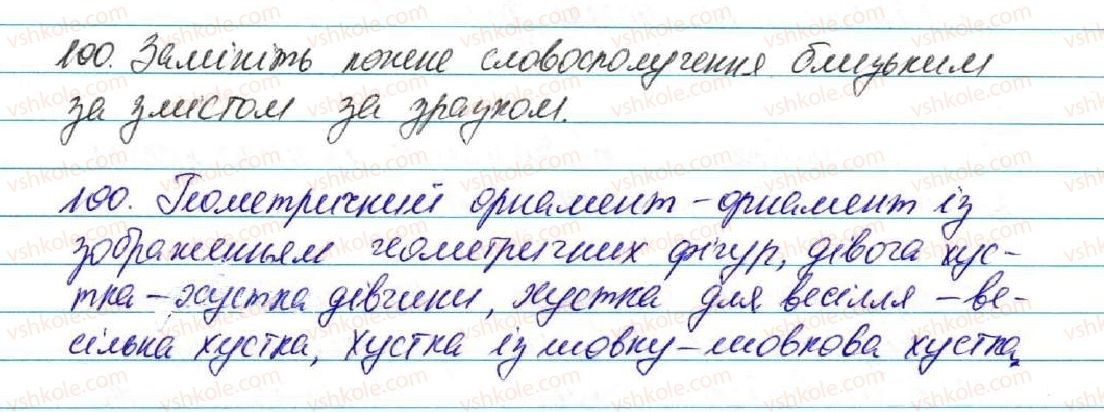 100. Замініть кожне словосполучення близьким
за змістом за зразком.
100. Геометричний орнамент - орнамент із
зображенням геометричних фігур, дівоча хус-
тка - хустка дівчини, хустка для весілля - ве-
сільна хустка, хустка із шовку - шовкова хустка.